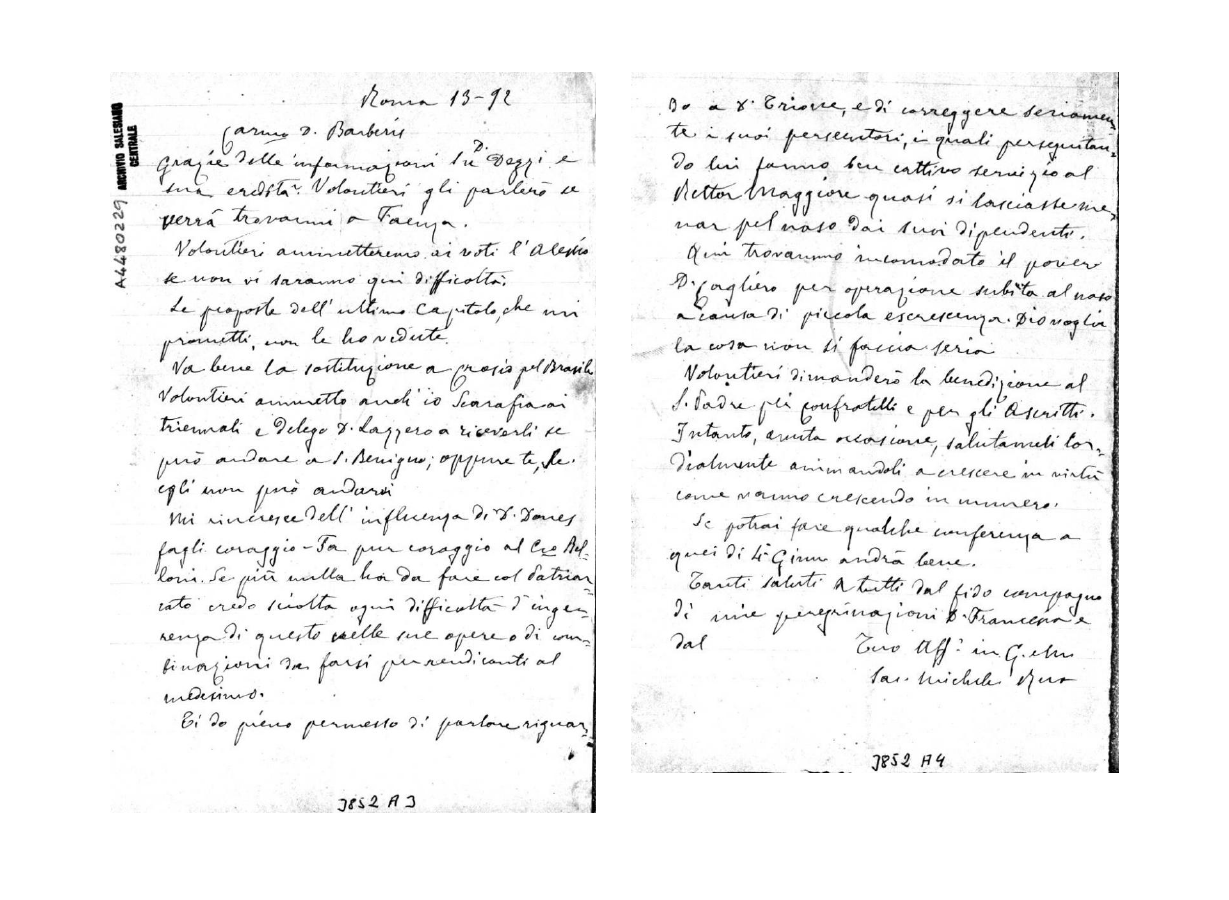 ARCHIVIO SALESIANO
CENTRALE
A4480229
Roma 13-92
Carmo D. Barberis
Grazie delle informazioni su D. Deppi e
sua eredità. Volontieri gli parlerò se
verrà trovarmi a Faenza.
Volontieri ammetteremo ai voti l'Alessio
se non vi saranno qui difficoltà.
Le proposte dell'ultimo Capitolo, che mi
prometti, non le ho vedute.
Va bene la sostituzione a pel Brasile
Volontieri ammetto anch'io Scarafia ai
triennali e delego D. Lazzero a riceverli se
può andare a S. Benigno; oppure te, se
egli non può andarvi
Mi rincresce dell'influenza di D.
fagli coraggio - Fa pur coraggio al Bel-
loni. Se più nulla ha da fare col Patriar-
cato credo sciolta ogni difficoltà d'inge-
renza di questo nelle sue opere o di com-
binazioni da farsi pei rendiconti al
medesimo.
Ti do pieno permesso di parlare riguar-
3852 A 3
do a D. Trione, e di correggere seriamen-
te i suoi persecutori, i quali perseguitan-
do lui fanno ben cattivo servizio al
Rettor Maggiore quasi si lasciasse me-
nar pel naso dai suoi dipendenti.
Qui trovammo incomodato il povero
D. Cagliero per operazione subita al naso
a causa di piccola escrescenza. Dio voglia
la cosa non si faccia seria
Volontieri dimanderò la benedizione al
S. Padre pei confratelli e per gli Ascritti.
Intanto, avuta occasione, salutameli cor-
dialmente animandoli a crescere in virtù
come vanno crescendo in numero.
Se potrai fare qualche conferenza a
quei di 4ª Ginn andrà bene.
Tanti saluti a tutti dal fido compagno
di mie peregrinazioni D. Francesia e
dal
Tuo Aff.º in G. e M.
Sac. Michele Rua
3852 A4